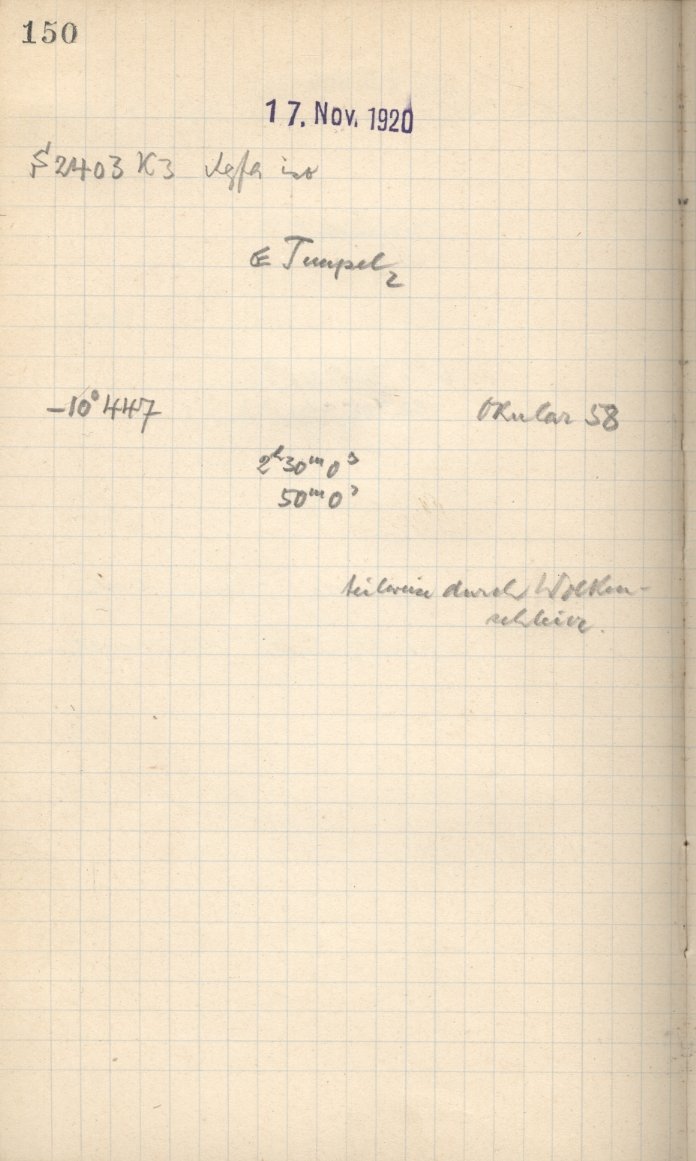 150
17. Nov. 1920
2403 K3
Tempel 2
–10° 447 Okular 58
2ʰ30ᵐ0ˢ
50ᵐ0ˢ
teilweise durch Wolken-
schleier.